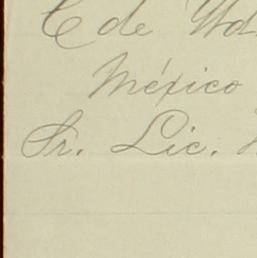 C de Ud
México
Sr. Lic.